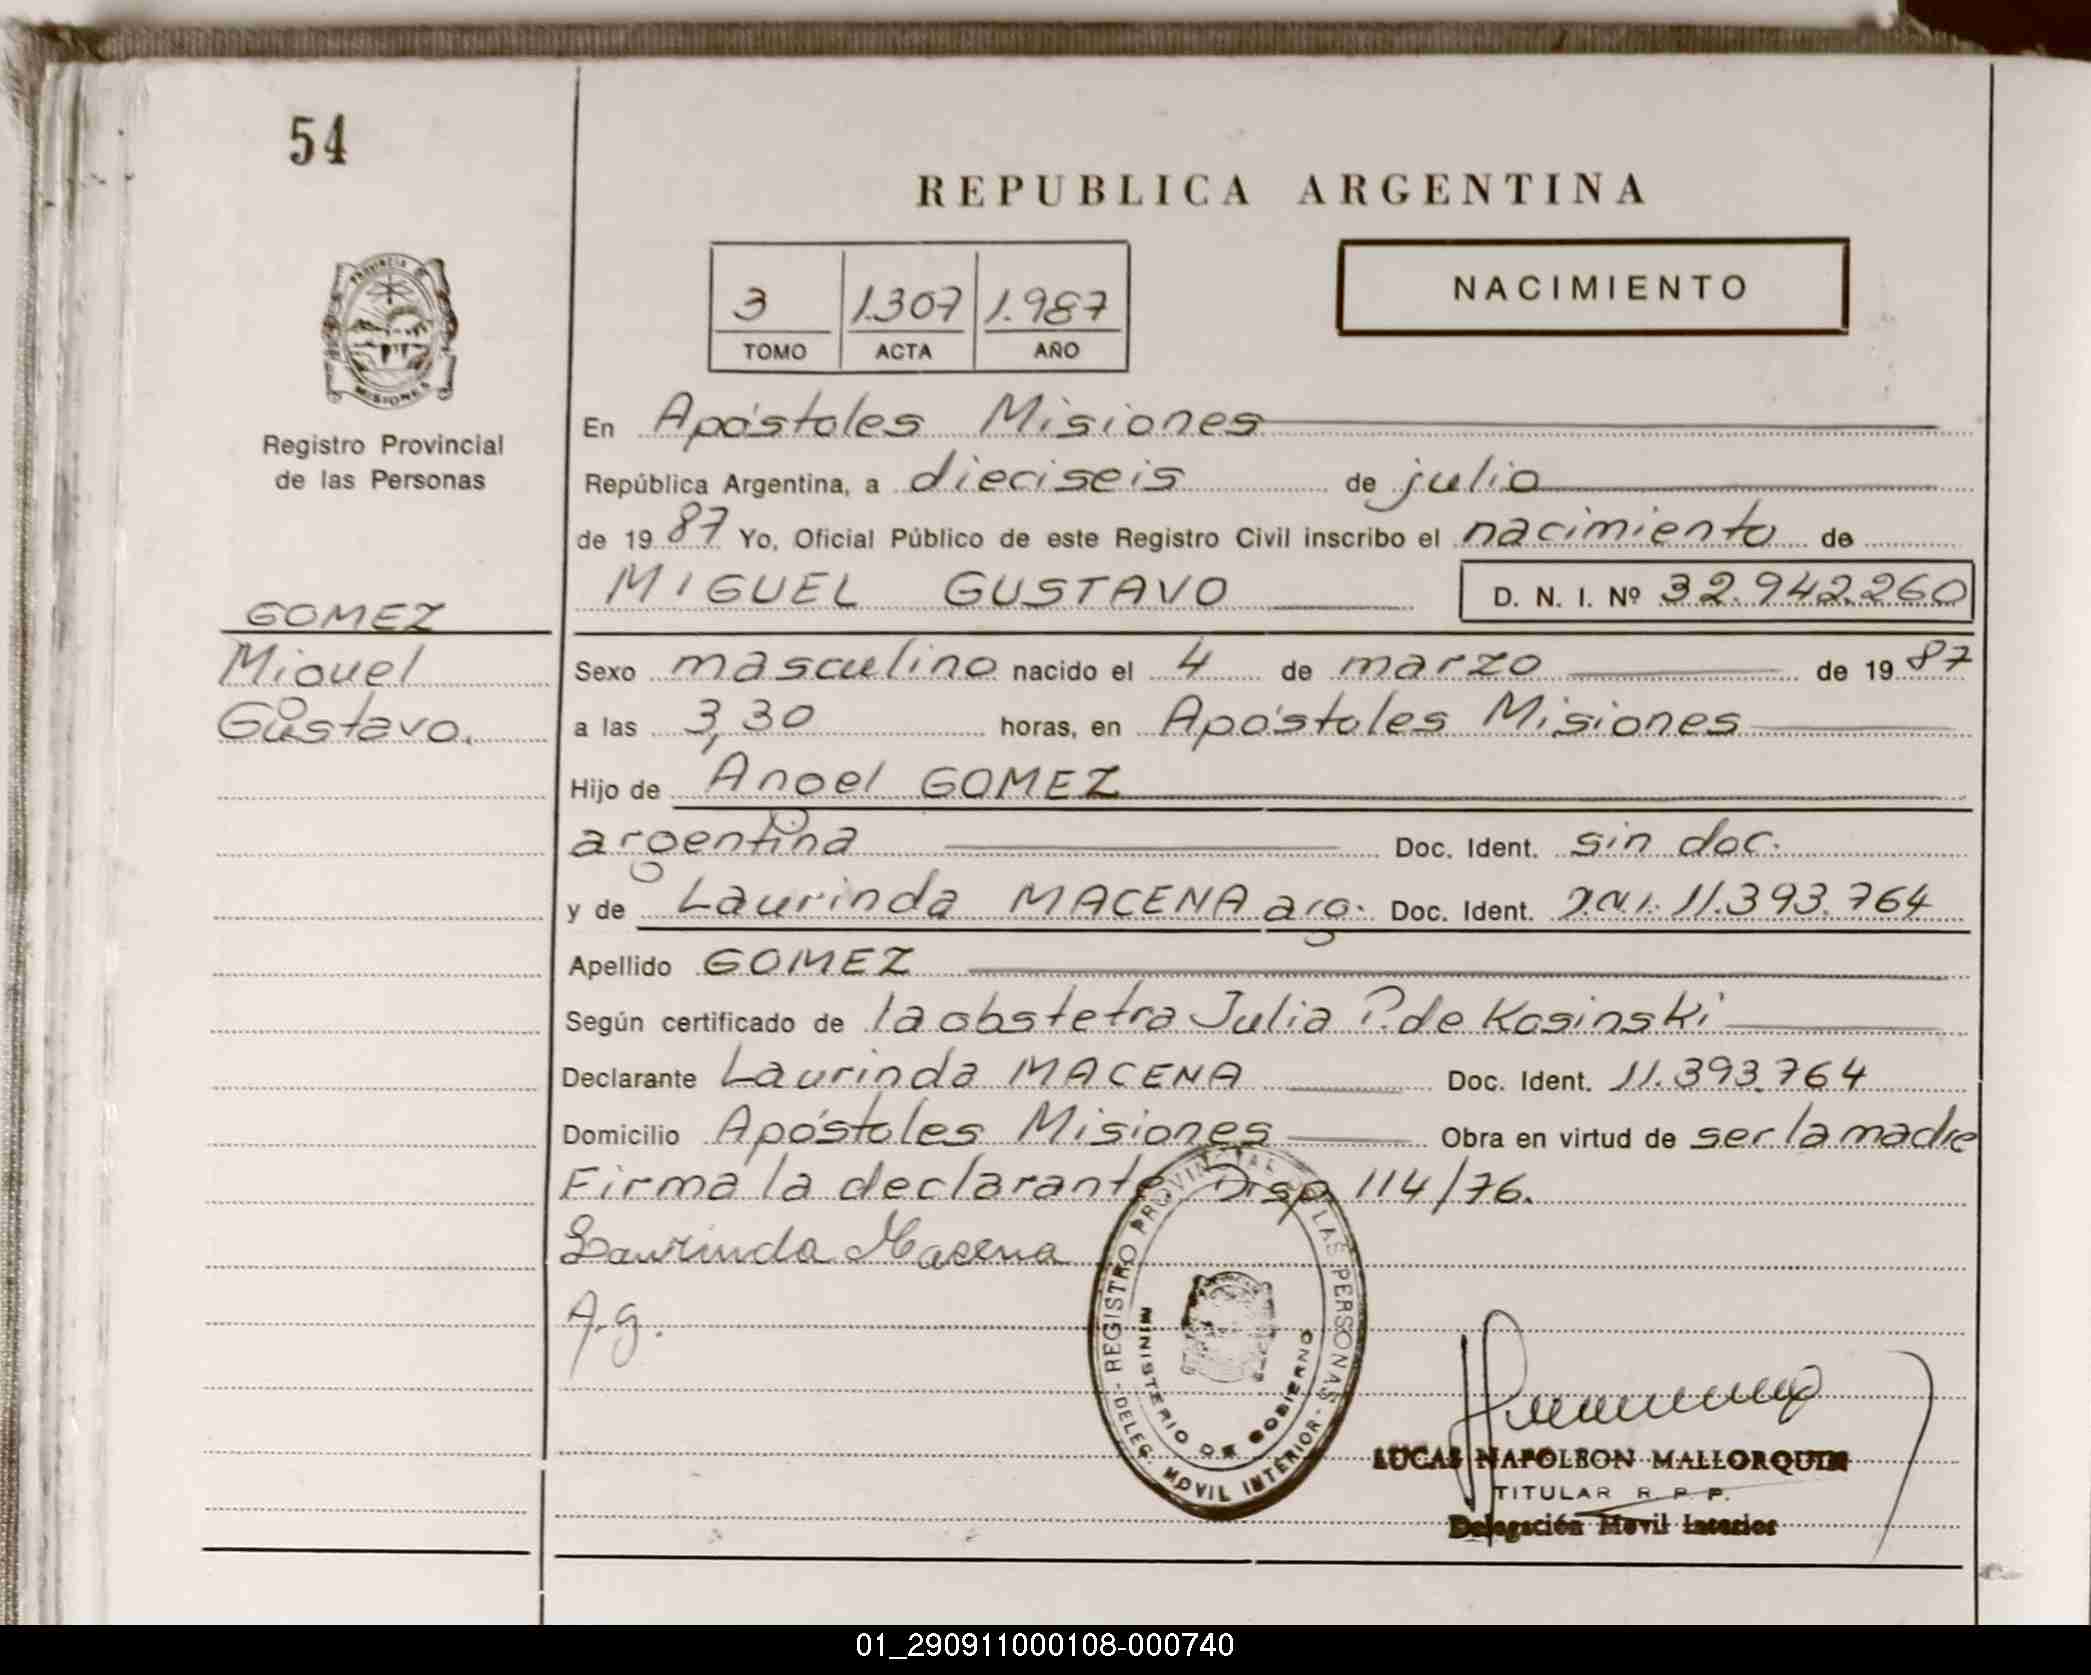 54
REPUBLICA ARGENTINA
PROVINCIA DE MISIONES
3 1.307 1.987
TOMO ACTA AÑO
NACIMIENTO
Registro Provincial
de las Personas
En Apóstoles Misiones
República Argentina, a dieciseis de julio
de 1987 Yo, Oficial Público de este Registro Civil inscribo el nacimiento de
MIGUEL GUSTAVO D. N. I. Nº 32.942.260
GOMEZ
Miguel
Gustavo.
Sexo masculino nacido el 4 de marzo de 1987
a las 3,30 horas, en Apóstoles Misiones
Hijo de Angel GOMEZ
argentina Doc. Ident. sin doc.
y de Laurinda MACENA arg. Doc. Ident. D.N.I. 11.393.764
Apellido GOMEZ
Según certificado de la obstetra Julia P. de Kosinski
Declarante Laurinda MACENA Doc. Ident. 11.393.764
Domicilio Apóstoles Misiones Obra en virtud de ser la madre
Firma la declarante. Disp 114/76.
Laurinda Macena
A.g.
REGISTRO PROVINCIAL DE LAS PERSONAS
MINISTERIO DE GOBIERNO
- DELEG. MOVIL INTERIOR -
LUCAS NAPOLEON MALLORQUIN
TITULAR R. P. P.
Delegación Movil Interior
01_290911000108-000740